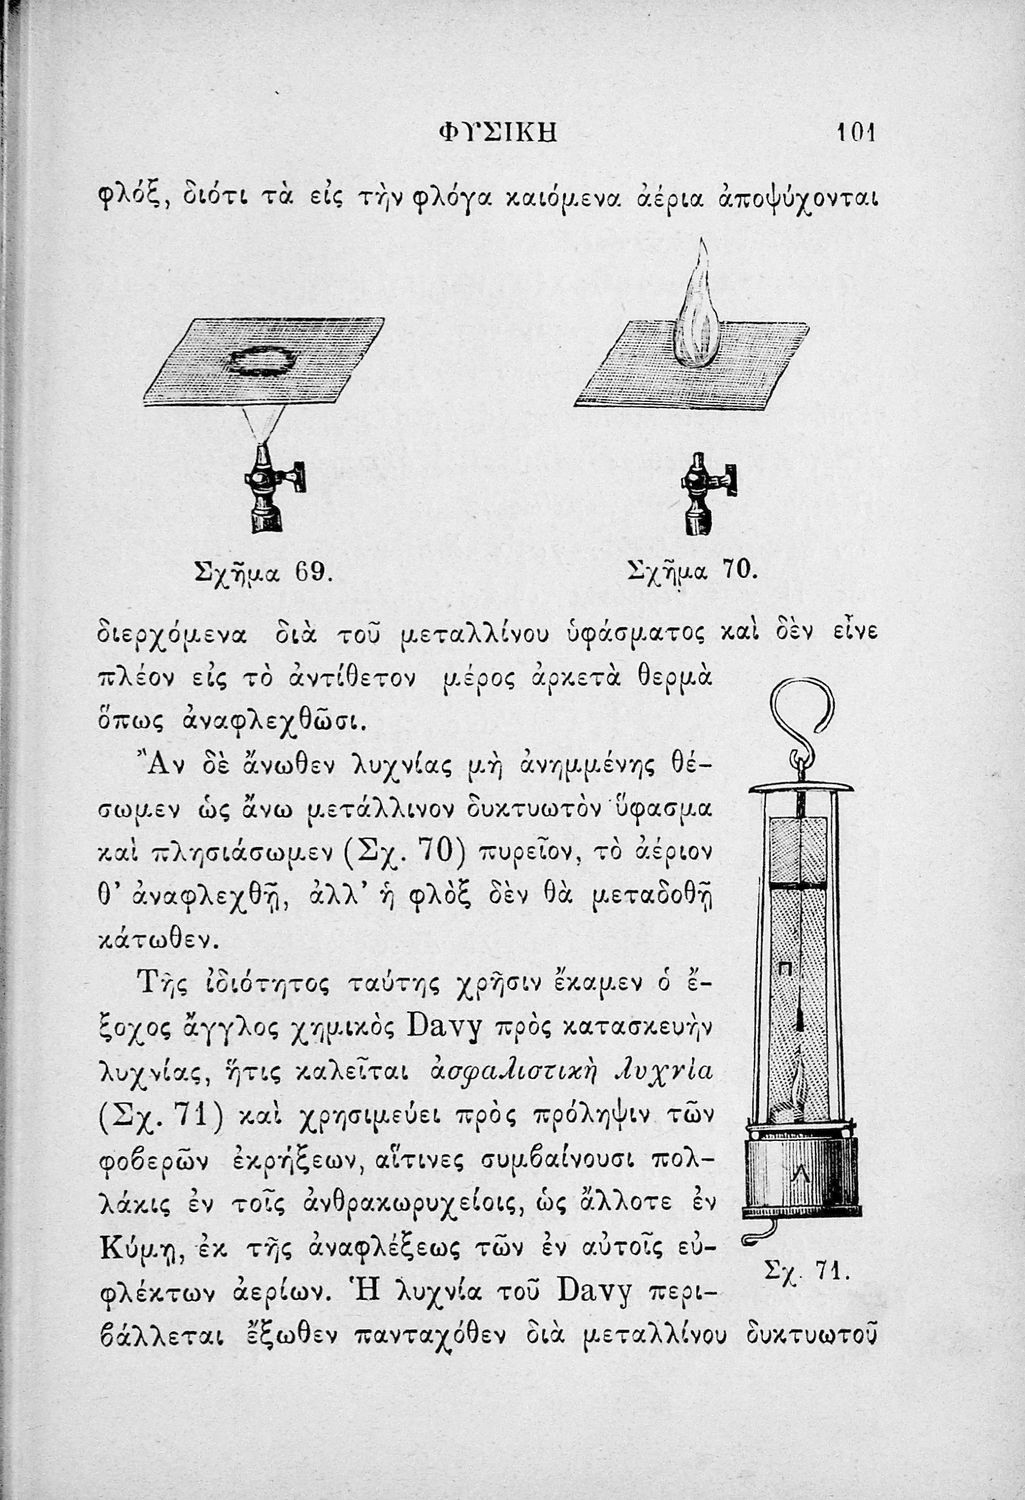 ΦΥΣΙΚΗ 101
φλόξ, διότι τὰ εἰς τὴν φλόγα καιόμενα ἀέρια ἀποψύχονται
Σχῆμα 69.
Σχῆμα 70.
διερχόμενα διὰ τοῦ μεταλλίνου ὑφάσματος καὶ δὲν εἶνε
πλέον εἰς τὸ ἀντίθετον μέρος ἀρκετὰ θερμὰ
ὅπως ἀναφλεχθῶσι.
Ἂν δὲ ἄνωθεν λυχνίας μὴ ἀνημμένης θέ-
σωμεν ὡς ἄνω μετάλλινον δυκτυωτὸν ὕφασμα
καὶ πλησιάσωμεν (Σχ. 70) πυρεῖον, τὸ ἀέριον
θ' ἀναφλεχθῇ, ἀλλ' ἡ φλὸξ δὲν θὰ μεταδοθῇ
κάτωθεν.
Τῆς ἰδιότητος ταύτης χρῆσιν ἔκαμεν ὁ ἔ-
ξοχος ἄγγλος χημικὸς Davy πρὸς κατασκευὴν
λυχνίας, ἥτις καλεῖται ἀσφαλιστικὴ λυχνία
(Σχ. 71) καὶ χρησιμεύει πρὸς πρόληψιν τῶν
φοβερῶν ἐκρήξεων, αἵτινες συμβαίνουσι πολ-
λάκις ἐν τοῖς ἀνθρακωρυχείοις, ὡς ἄλλοτε ἐν
Κύμῃ, ἐκ τῆς ἀναφλέξεως τῶν ἐν αὐτοῖς εὐ-
φλέκτων ἀερίων. Ἡ λυχνία τοῦ Davy περι-
βάλλεται ἔξωθεν πανταχόθεν διὰ μεταλλίνου δυκτυωτοῦ
Π
Λ
Σχ. 71.